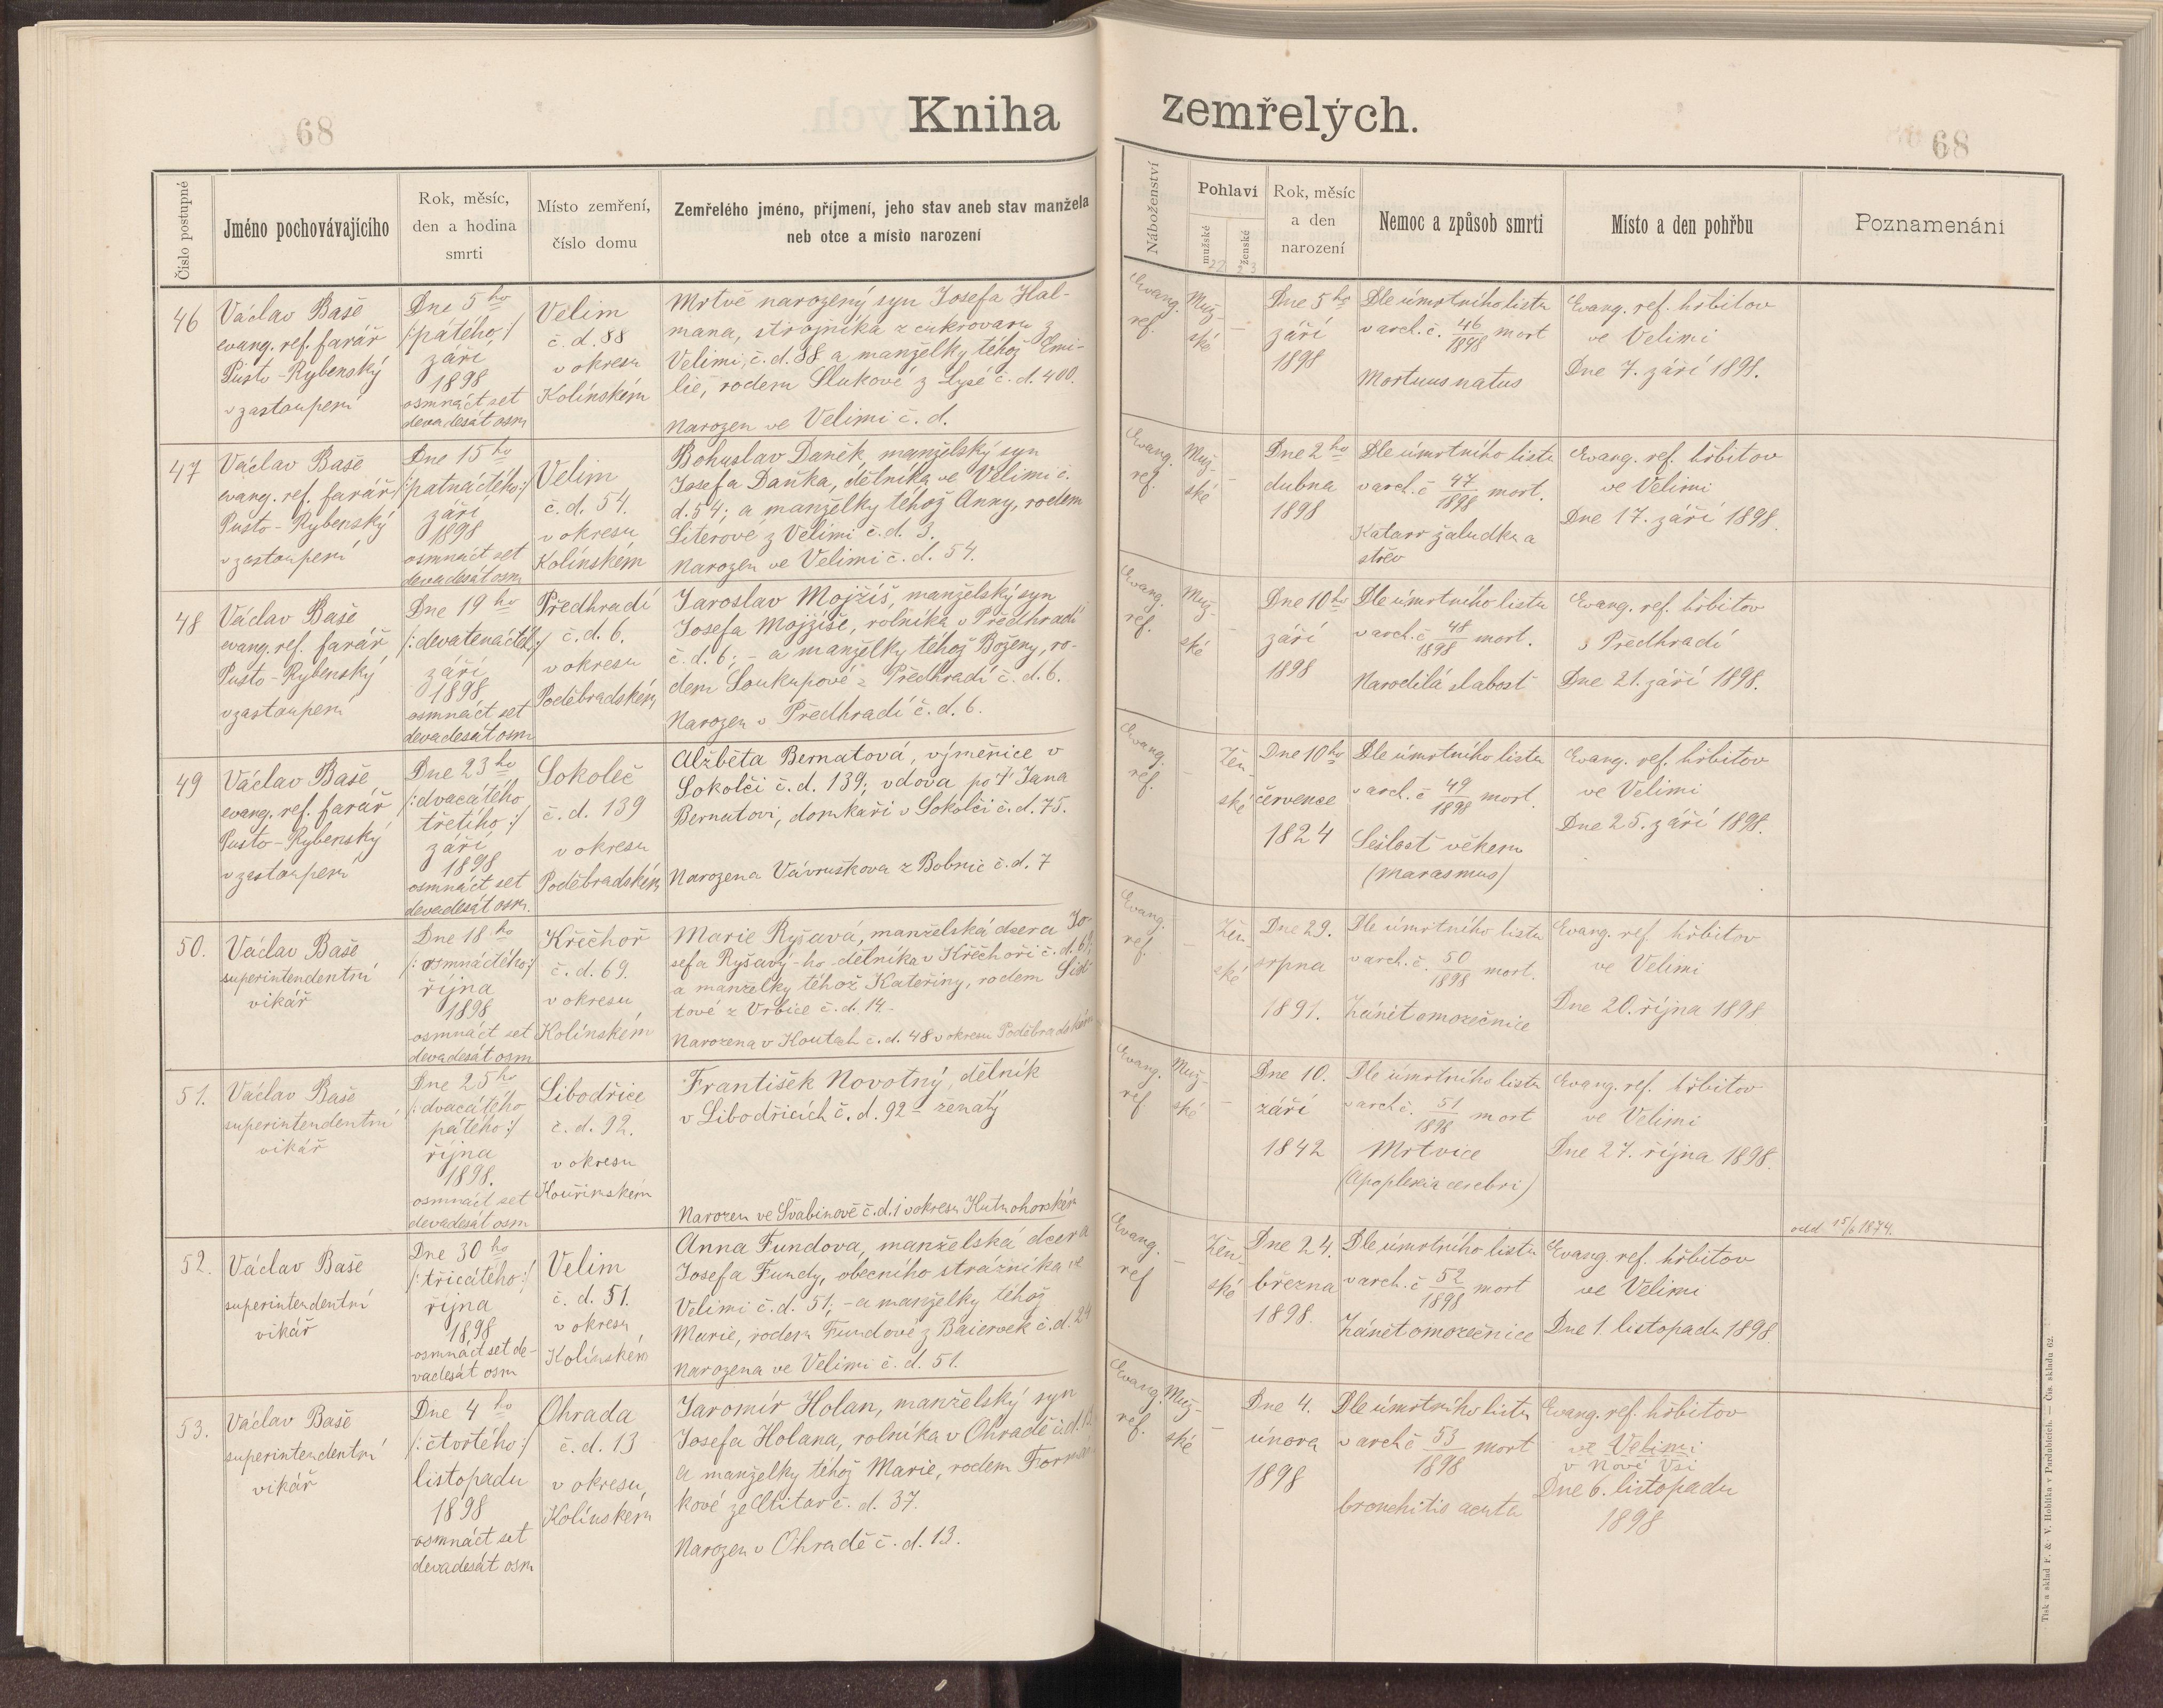 68
Kniha zemřelých.
68
Číslo postupné
Jméno pochovávajícího
Rok, měsíc,
den a hodina
smrti
Místo zemření,
číslo domu
Zemřelého jméno, příjmení, jeho stav aneb stav manžela
neb otce a místo narození
Náboženství
Pohlaví
mužské
ženské
22 23
Rok, měsíc
a den
narození
Nemoc a způsob smrti
Místo a den pohřbu
Poznamenání
46
Václav Baše
evang. ref. farář
Pusto-Rybenský
v zastoupení
Dne 5ho
/:pátého:/
září
1898
osmnáct set
devadesát osm
Velim
č. d. 88
v okresu
Kolínském
Mrtvě narozený syn Josefa Hal-
mana, strojníka z cukrovaru z
Velimi, č. d. 88 a manželky téhož Emi-
lie, rodem Slukové z Lysé č. d. 400.
Narozen ve Velimi č. d.
Evang.
ref.
Muž-
ské
-
Dne 5ho
září
1898
Dle úmrtního listu
v arch. č. 46/1898 mort
Mortuus natus
Evang. ref. hřbitov
ve Velimi
Dne 7. září 1898.
47
Václav Baše
evang. ref. farář
Pusto-Rybenský
v zastoupení
Dne 15ho
/:patnáctého:/
září
1898
osmnáct set
devadesát osm
Velim
č. d. 54.
v okresu
Kolínském
Bohuslav Daněk, manželský syn
Josefa Daňka, dělníka ve Velimi č.
d. 54; a manželky téhož Anny, rodem
Literové z Velimi č. d. 3.
Narozen ve Velimi č. d. 54.
Evang.
ref.
Muž-
ské
-
Dne 2ho
dubna
1898
Dle úmrtního listu
v arch. č 47/1898 mort.
Katarr žaludku a
střev
Evang. ref. hřbitov
ve Velimi
Dne 17. září 1898.
48
Václav Baše
evang. ref. farář
Pusto-Rybenský
v zastoupení
Dne 19ho
/:devatenáctéh:/
září
1898
osmnáct set
devadesát osm
Předhradí
č. d. 6.
v okresu
Poděbradském
Jaroslav Mojžíš, manželský syn
Josefa Mojžíše, rolníka v Předhradí
č. d. 6; - a manželky téhož Boženy, ro-
dem Soukupové z Předhradí č. d. 6.
Narozen v Předhradí č. d. 6.
Evang.
ref.
Muž-
ské
-
Dne 10ho
září
1898
Dle úmrtního listu
v arch. č 48/1898 mort.
Narodilá slabost
Evang. ref. hřbitov
v Předhradí
Dne 21. září 1898.
49
Václav Baše
evang. ref. farář
Pusto-Rybenský
v zastoupení
Dne 23ho
/:dvacátého
třetího:/
září
1898
osmnáct set
devadesát osm.
Sokoleč
č. d. 139
v okresu
Poděbradském
Alžběta Bernatová, výměnice v
Sokolči č. d. 139; vdova po † Jana
Bernatovi, domkaři v Sokolči č. d. 75.
Narozena Vavruškova z Bobnic č. d. 7
Evang.
ref.
-
Žen-
ské
Dne 10ho
července
1824
Dle úmrtního listu
v arch. č 49/1898 mort.
Sešlost věkem
(marasmus)
Evang. ref. hřbitov
ve Velimi
Dne 25. září 1898.
50.
Václav Baše
superintendentní
vikář
Dne 18ho
/:osmnáctého:/
října
1898
osmnáct set
devadesát osm
Křečhoř
č. d. 69.
v okresu
Kolínském
Marie Ryšavá, manželská dcera Jo-
sefa Ryšavý-ho dělníka v Křečhoři č. d. 69;
a manželky téhož Kateřiny, rodem
tové z Vrbice č. d. 14.-
Narozena v Houtech č. d. 48 v okresu Poděbradském
Evang.
ref.
-
Žen-
ské
Dne 29.
srpna
1891.
Dle úmrtního listu
v arch. č. 50/1898 mort.
Zánět omozečnice
Evang. ref. hřbitov
ve Velimi
Dne 20. října 1898
51.
Václav Baše
superintendentní
vikář
Dne 25ho
/:dvacátého
pátého:/
října
1898.
osmnáct set
devadesát osm
Libodřice
č. d. 92.
v okresu
Kouřimském
František Novotný, dělník
v Libodřicích č. d. 92 - ženatý
Narozen ve Švabinově č. d. 1 v okresu Kutnohorském
Evang.
ref
Muž-
ské
-
Dne 10.
září
1842
Dle úmrtního listu
v arch č. 51/1898 mort
Mrtvice
(Apoplexia cerebri)
Evang. ref. hřbitov
ve Velimi
Dne 27. října 1898.
odd. 15/6 1874.
52.
Václav Baše
superintendentní
vikář
Dne 30ho
/:třicátého:/
října
1898
osmnáct set de-
vadesát osm
Velim
č. d. 51.
v okresu
Kolínském
Anna Fundova, manželská dcera
Josefa Fundy, obecního strážníka ve
Velimi č. d. 51; - a manželky téhož
Marie, rodem Fundové z Baiervek č. d. 24
Narozena ve Velimi č. d. 51.
Evang.
ref
-
Žen-
ské
Dne 24.
března
1898.
Dle úmrtního listu
v arch. č 52/1898 mort
Zánět omozečnice
Evang. ref. hřbitov
ve Velimi
Dne 1. listopadu 1898.
53.
Václav Baše
superintendentní
vikář
Dne 4ho
/:čtvrtého:/
listopadu
1898
osmnáct set
devadesát osm
Ohrada
č. d. 13
v okresu
Kolínském
Jaromír Holan, manželský syn
Josefa Holana, rolníka v Ohradě č. d. 13
a manželky téhož Marie, rodem
kové ze Mitar č. d. 37.
Narozen v Ohradě č. d. 13.
Evang.
ref.
Muž-
ské
-
Dne 4.
února
1898
Dle úmrtního listu
v arch č 53/1898 mort
bronchitis acuta
Evang. ref. hřbitov
ve Velimi
v Nové Vsi
Dne 6. listopadu
1898
Tisk a sklad F. & V. Hoblíka v Pardubicích. — Čís. skladu 62.